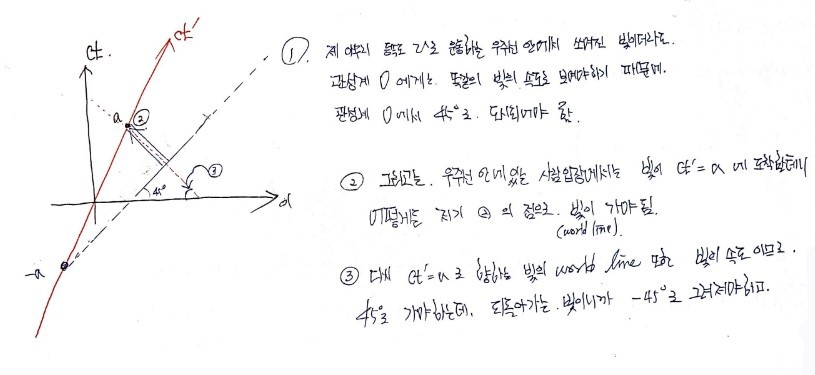 ct.
ct'
① 제 아무리 등속도 v로 운동하는 우주선 안에서 쏘여진 빛이더라도.
관성계 O에게는 똑같이 빛의 속도로 보여야하기 때문에.
관성계 O에서 45°로 도시되어야 함.
a
②
③
45°
x
-a
② 그리고는 우주선 안에 있는 사람입장에서는 빛이 ct'=a에 도착할테니
어떻게든 저기 ②의 점으로 빛이 가야됨.
(world line)
③ 다시 ct'=a로 향하는 빛의 world line 또한 빛의 속도이므로.
45°로 가야하는데, 되돌아가는 빛이니까 -45°로 그려져야하고.